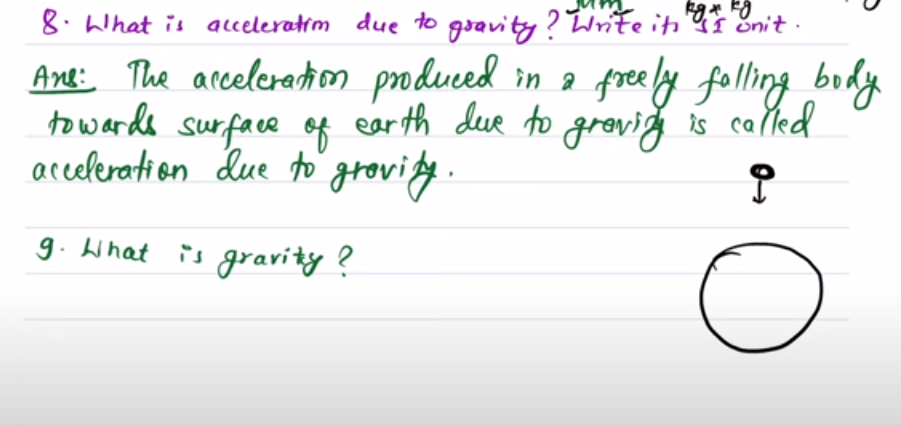 kg × kg
8. What is acceleration due to gravity? Write its SI unit.
Ans: The acceleration produced in a freely falling body
towards surface of earth due to gravity is called
acceleration due to gravity.
9. What is gravity?